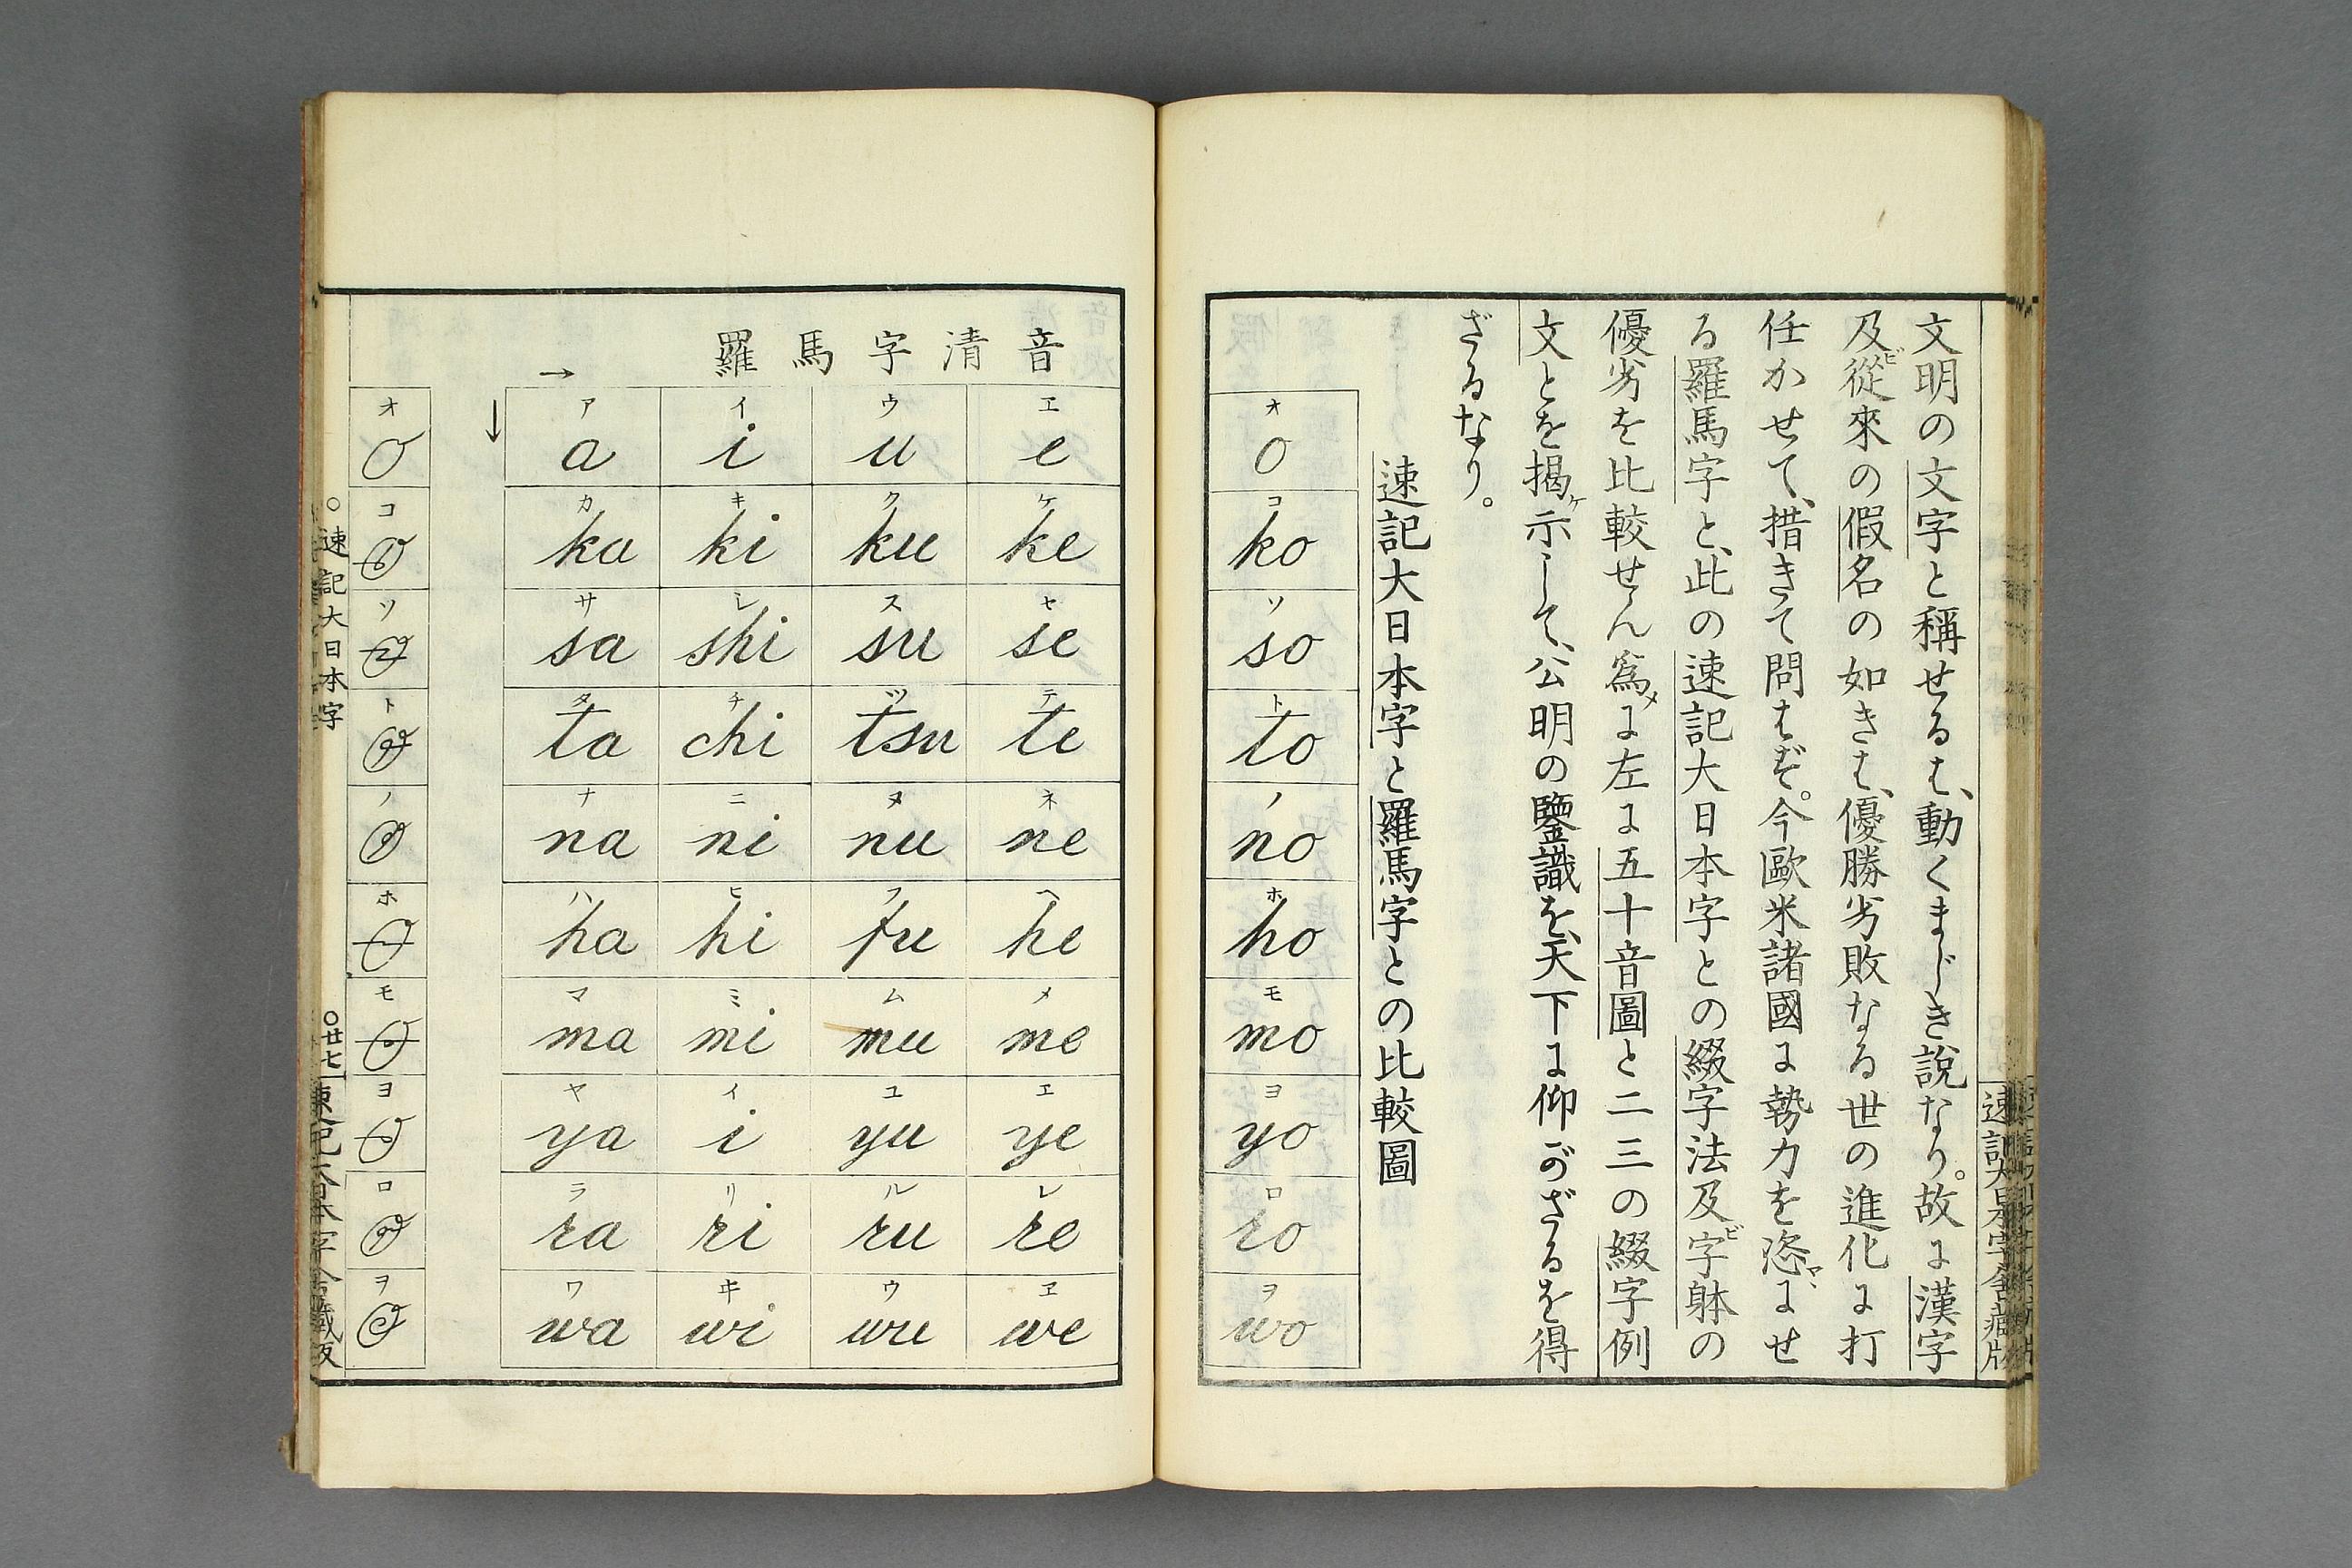 文明の文字と稱せるは、動くまじき說なり。故に漢字
及ビ從來の假名の如きは、優勝劣敗なる世の進化に打
任かせて、措きて問はず。今歐米諸國に勢力を恣マヽにせ
る羅馬字と、此の速記大日本字との綴字法及ビ字躰の
優劣を比較せん爲メに左に五十音圖と二三の綴字例
文とを揭ケ示して、公明の鑒識を、天下に仰がざるを得
ざるなり。
速記大日本字と羅馬字との比較圖
オ o
コ ko
ソ so
ト to
ノ no
ホ ho
モ mo
ヨ yo
ロ ro
ヲ wo
羅馬字清音
→
↓
ア a イ i ウ u エ e
カ ka キ ki ク ku ケ ke
サ sa シ shi ス su セ se
タ ta チ chi ツ tsu テ te
ナ na ニ ni ヌ nu ネ ne
ハ ha ヒ hi フ fu ヘ he
マ ma ミ mi ム mu メ me
ヤ ya イ i ユ yu エ ye
ラ ra リ ri ル ru レ re
ワ wa ヰ wi ウ wu ヱ we
オ
コ
ソ
ト
ノ
ホ
モ
ヨ
ロ
ヲ
○速記大日本字
○廿七